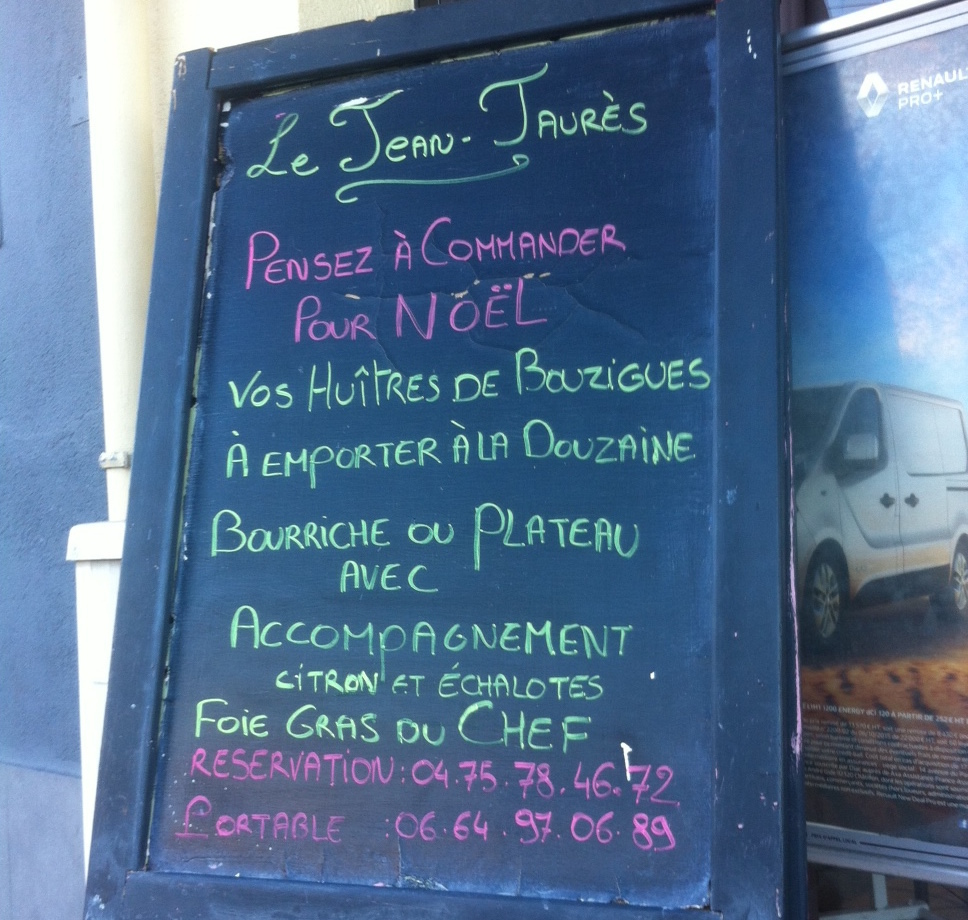 Le Jean-Jaurès
Pensez à Commander
Pour Noël
Vos Huîtres de Bouzigues
à emporter à la Douzaine
Bourriche ou Plateau
avec
Accompagnement
citron et échalotes
Foie Gras du Chef
Reservation : 04.75.78.46.72
Portable : 06.64.97.06.89
RENAULT
PRO+